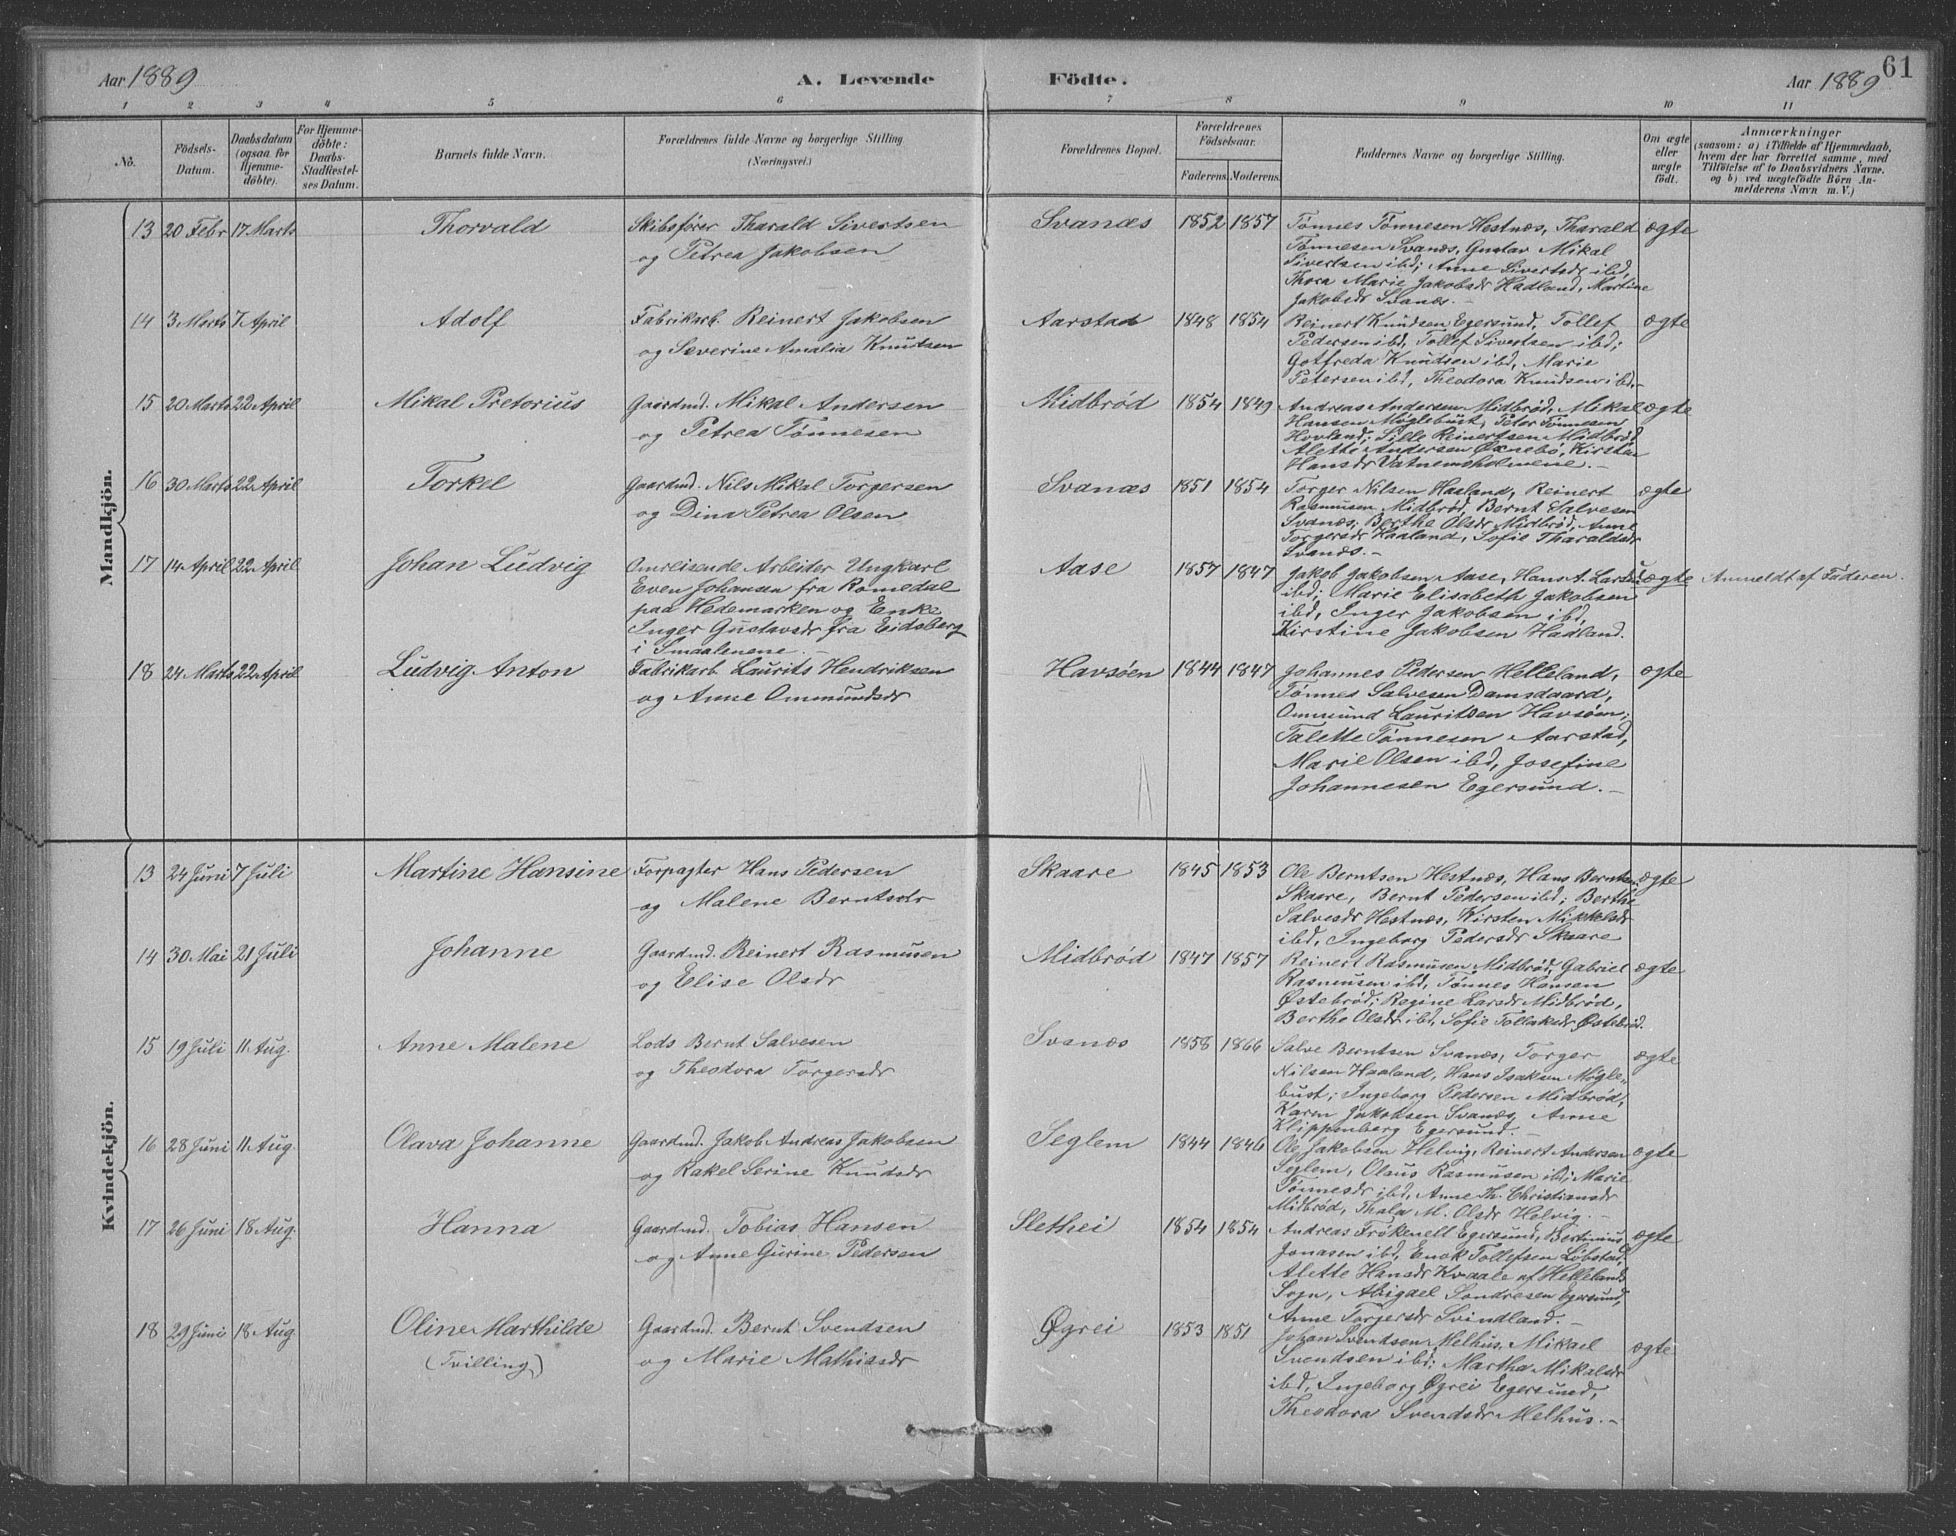 Aar 1889 A. Levende Födte. Aar 1889 61
1 2 3 4 5 6 7 8 9 10 11
No. Födsels-Datum. Daabsdatum (ogsaa for Hjemme-döbte). For Hjemme-döbte: Daabs-Stadfæstel-ses Datum. Barnets fulde Navn. Forældrenes fulde Navne og borgerlige Stilling (Næringsvei.) Forældrenes Bopæl. Forældrenes Födselsaar. Faderens. Moderens. Faddernes Navne og borgerlige Stilling. Om ægte eller uægte födt. Anmærkninger (saasom: a) i Tilfælde af Hjemmedaab, hvem der har forrettet samme, med Tilföielse af to Daabsvidners Navne. og b) ved uægtefödte Börn An-melderens Navn m. V.)
Mandkjön.
13 20 Febr 17 Marts Thorvald Skibsfører Tharald Sivertsen Svanæs 1852 1857 Tønnes Tønnesen Hestnæs, Tharald ægte
og Petrea Jakobsen Tønnesen Svanæs, Gustav Mikal
Sivertsen ibd; Anne Sivertsdr ibd,
Thora Marie Jakobsdr Hadland, Martine
Jakobsdr Svanæs.–
14 3 Marts 7 April Adolf Fabrikarb. Reinert Jakobsen Aarstad 1848 1854 Reinert Knudsen Egersund, Tollef ægte
og Severine Amalia Knutsen Pedersen ibd, Tollef Sivertsen ibd;
Gotfreda Knudsen ibd, Marie
Petersen ibd, Theodora Knudsen ibd.–
15 20 Marts 22 April Mikal Pretorius Gaardmd. Mikal Andersen Midbrød 1854 1849 Andreas Andersen Midbrød, Mikal ægte
og Petrea Tønnesen Hansen Møglebust, Peter Tønnesen
Hovland; Sille Reinertsen Midbrød
Alette Andersen Øxnebø, Kirsten
Hansdr Vatnemsholmene.–
16 30 Marts 22 April Torkel Gaardmd. Nils Mikal Torgersen Svanæs 1851 1854 Torger Nilsen Haaland, Reinert ægte
og Dina Petrea Olsen Rasmusen Midbrød, Bernt Salvesen
Svanæs; Berthe Olsdr Midbrød, Anne
Torgersdr Haaland, Sofie Tharaldsdr
Svanæs.–
17 14 April 22 April Johan Ludvig Omreisende Arbeider Ungkarl Aase 1857 1847 Jakob Jakobsen Aase, Hans A. Larsen uægte Anmeldt af Faderen.
Even Johansen fra Romedal ibd; Marie Elisabeth Jakobsen
paa Hedemarken og Enke ibd, Inger Jakobsen ibd,
Inger Gustavsdr fra Eidsberg Kirstine Jakobsen Hadland.
i Smaalenene.–
18 24 Marts 22 April Ludvig Anton Fabrikarb Laurits Hendriksen Havsøen 1844 1847 Johannes Pedersen Helleland, ægte
og Anne Ommundsdr Tønnes Salvesen Damsgaard,
Ommund Lauritsen Havsøen;
Talette Tønnesen Aarstad,
Marie Olsen ibd, Josefine
Johannesen Egersund.–
Kvindekjön.
13 24 Juni 7 Juli Martine Hansine Forpagter Hans Pedersen Skaare 1845 1853 Ole Berntsen Hestnæs, Hans Berntsen ægte
og Malene Berntsdr Skaare, Bernt Pedersen ibd; Berthe
Salvesdr Hestnæs, Kirsten Mikkelsdr
ibd, Ingeborg Pedersdr Skaare
14 30 Mai 21 Juli Johanne Gaardmd. Reinert Rasmusen Midbrød 1847 1857 Reinert Rasmusen Midbrød, Gabriel ægte
og Elise Olsdr Rasmusen ibd, Tønnes Hansen
Østebrød; Regine Larsdr Midbrød,
Berthe Olsdr ibd, Sofie Tollaksdr Østebrød.
15 19 Juli 11 Aug. Anne Malene Lods Bernt Salvesen Svanæs 1858 1866 Salve Berntsen Svanæs, Torger ægte
og Theodora Torgersdr Nilsen Haaland, Hans Isaksen Møgle-
bust; Ingeborg Pedersen Midbrød,
Karen Jakobsen Svanæs, Anne
Klippenberg Egersund.–
16 28 Juni 11 Aug. Olava Johanne Gaardmd. Jakob Andreas Jakobsen Seglem 1844 1846 Ole Jakobsen Helvig, Reinert Andersen ægte
og Rakel Serine Knudsdr Seglem, Olaus Rasmusen ibd; Marie
Tønnesdr ibd, Anne Th. Christiansdr
Midbrød, Thala M. Olsdr Helvig.–
17 26 Juni 18 Aug. Hanna Gaardmd. Tobias Hansen Slethei 1854 1854 Andreas Frøkenelt Egersund, Bertinius ægte
og Anne Gurine Pedersen Jonasen ibd, Enok Tollefsen Løbstad;
Alette Hansdr Kvaale af Hellelands
Sogn, Abigael Sondresen Egersund,
Anne Torgersdr Svindland.–
18 29 Juni 18 Aug Oline Marthilde Gaardmd. Bernt Svendsen Øgrei 1853 1851 Johan Svendsen Melhus, Mikael ægte
(Tvilling) og Marie Mathiasdr Svendsen ibd; Martha Mikalsdr
ibd, Ingeborg Øgrei Egersund,
Theodora Svendsdr Melhus.–